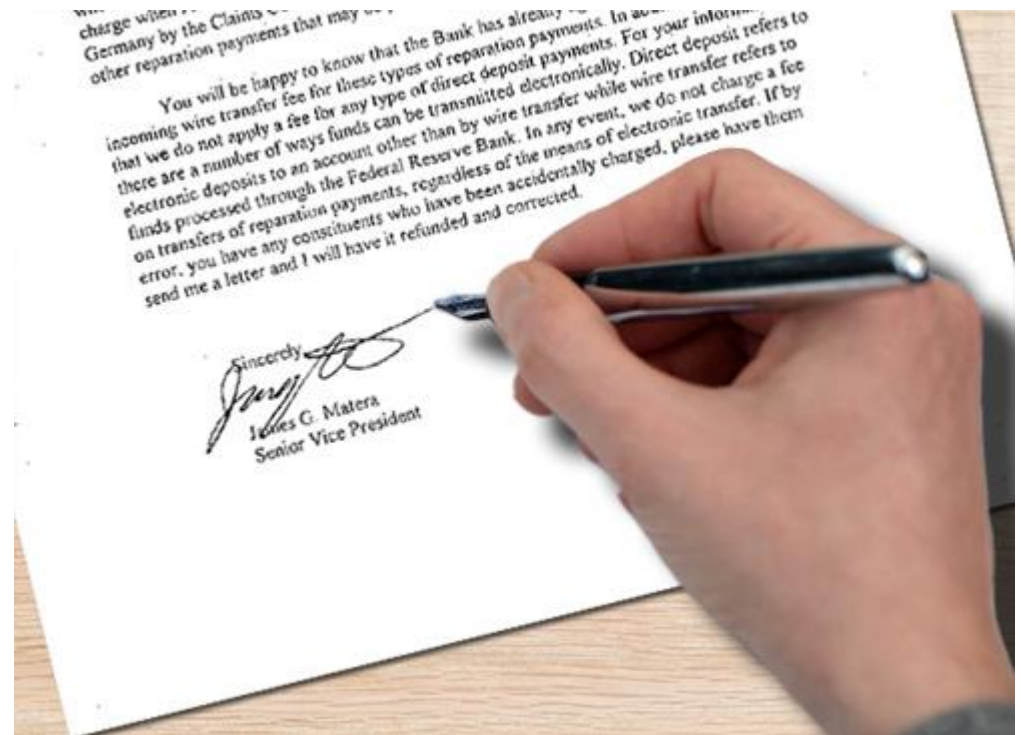 charge when
Germany by the Claims
other reparation payments that may be
You will be happy to know that the Bank has already
incoming wire transfer fee for these types of reparation payments. In
that we do not apply a fee for any type of direct deposit payments. For your
there are a number of ways funds can be transmitted electronically. Direct deposit refers to
electronic deposits to an account other than by wire transfer while wire transfer refers to
funds processed through the Federal Reserve Bank. In any event, we do not charge a fee
on transfers of reparation payments, regardless of the means of electronic transfer. If by
error, you have any constituents who have been accidentally charged, please have them
send me a letter and I will have it refunded and corrected.
Sincerely
James G. Matera
Senior Vice President